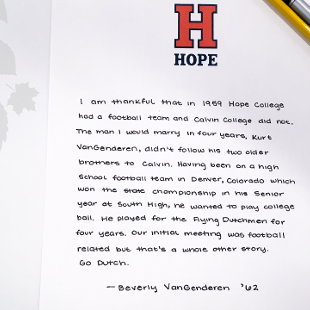 H
HOPE
I am thankful that in 1959 Hope College
had a football team and Calvin College did not.
The man I would marry in four years, Kurt
VanGenderen, didn't follow his two older
brothers to Calvin. Having been on a high
school football team in Denver, Colorado which
won the state championship in his Senior
year at South High, he wanted to play college
ball. He played for the Flying Dutchmen for
four years. Our initial meeting was football
related but that's a whole other story.
Go Dutch.
— Beverly VanGenderen '62